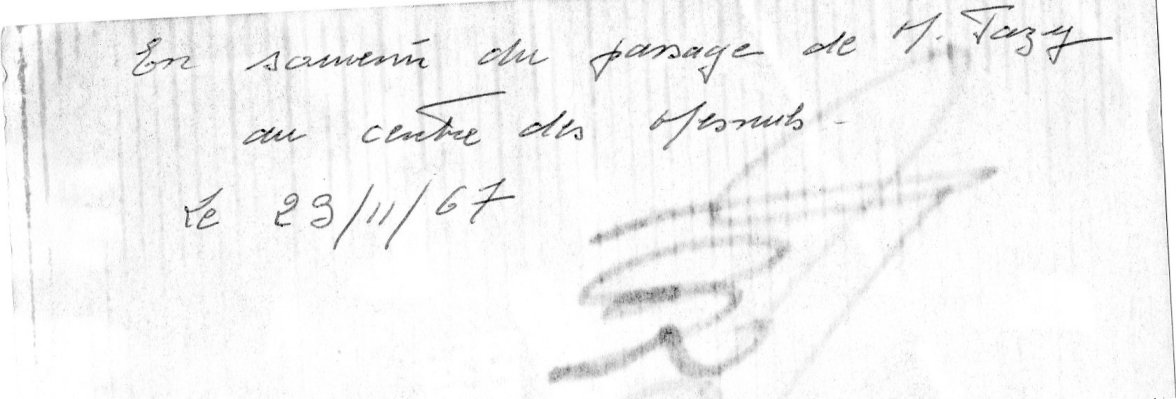 En souvenir du passage de M. Tazy
au centre des Mesnuls -
Le 23/11/67